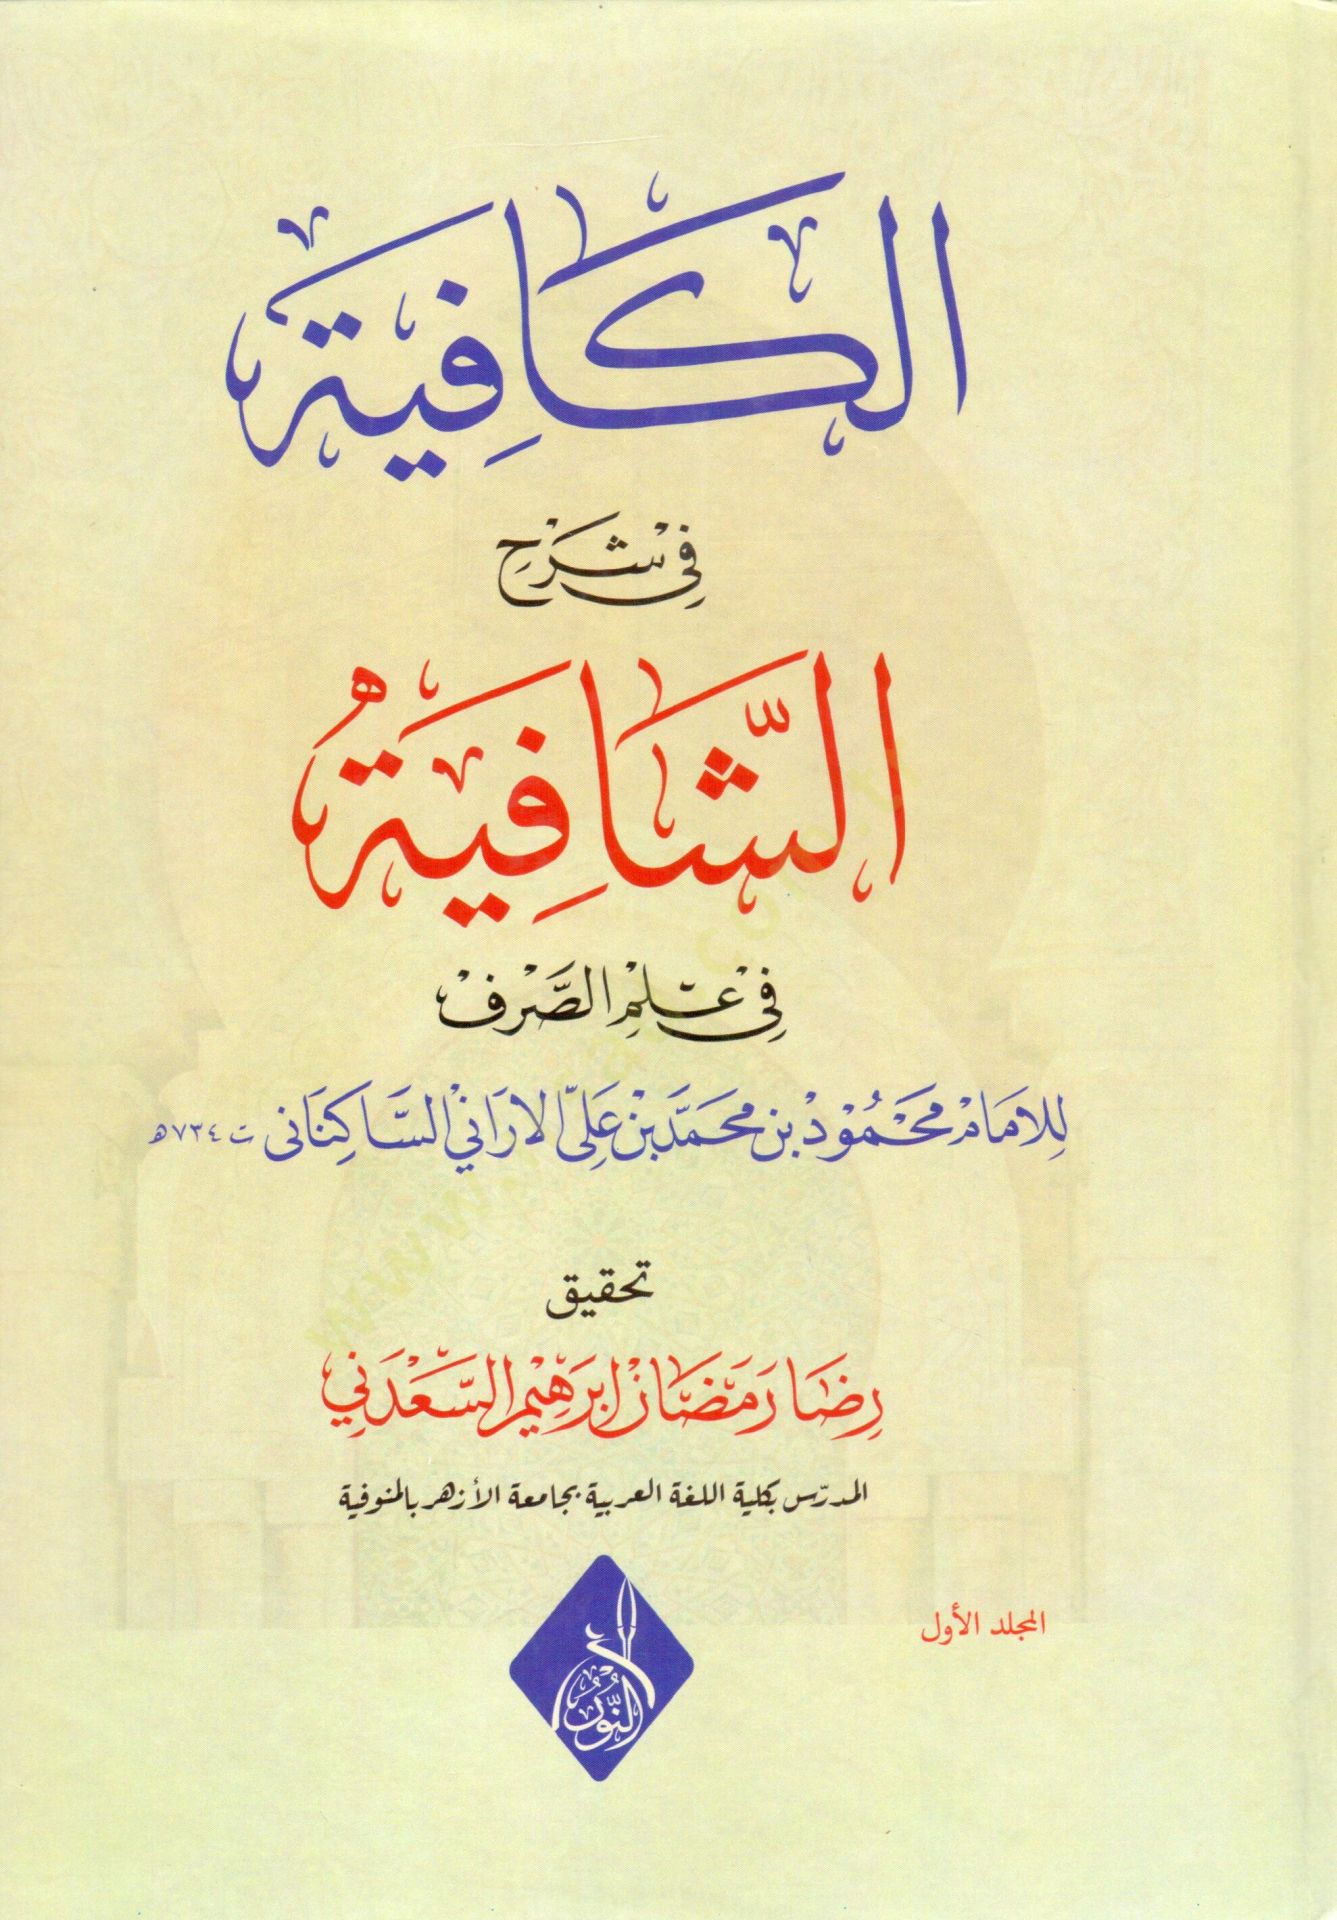 الكافية
في شرح
الشافية
في علم الصرف
للامام محمود بن محمد بن علي الاراني الساكناني ت ٧٣٤هـ
تحقيق
رضا رمضان ابرهيم السعدني
المدرّس بكلية اللغة العربية بجامعة الأزهر بالمنوفية
المجلد الأول
النور